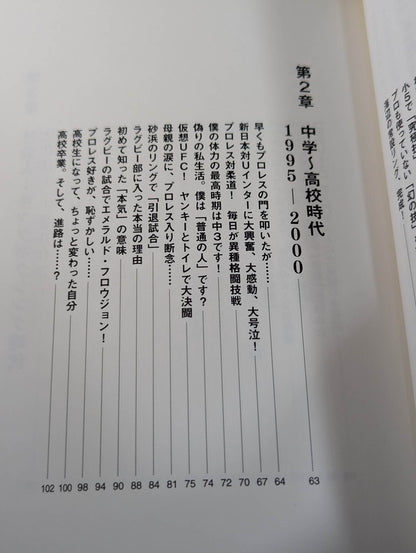 プロも使っていない「幻の
第2章 中学〜高校時代
1995―2000 63
早くもプロレスの門を叩いたが…… 64
新日本対Uインターに大興奮、大感動、大号泣! 67
プロレス対柔道! 毎日が異種格闘技戦 70
僕の体力の最高時期は中3です! 72
偽りの私生活。僕は「普通の人」です? 74
仮想UFC! ヤンキーとトイレで大決闘 75
母親の涙に、プロレス入り断念…… 81
砂浜のリングで「引退試合」 84
ラグビー部に入った本当の理由 88
初めて知った「本気」の意味 90
ラグビーの試合でエメラルド・フロウジョン! 94
プロレス好きが、恥ずかしい…… 98
高校生になって、ちょっと変わった自分 100
高校卒業。そして、進路は……? 102